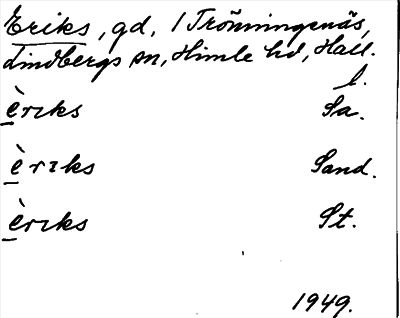 Eriks, gd, 1 Trönningenäs,
Lindbergs sn, Himle hd, Hall.
l.
èrɪks Sa.
èrɪks Sand.
èrɪks St.
1949.